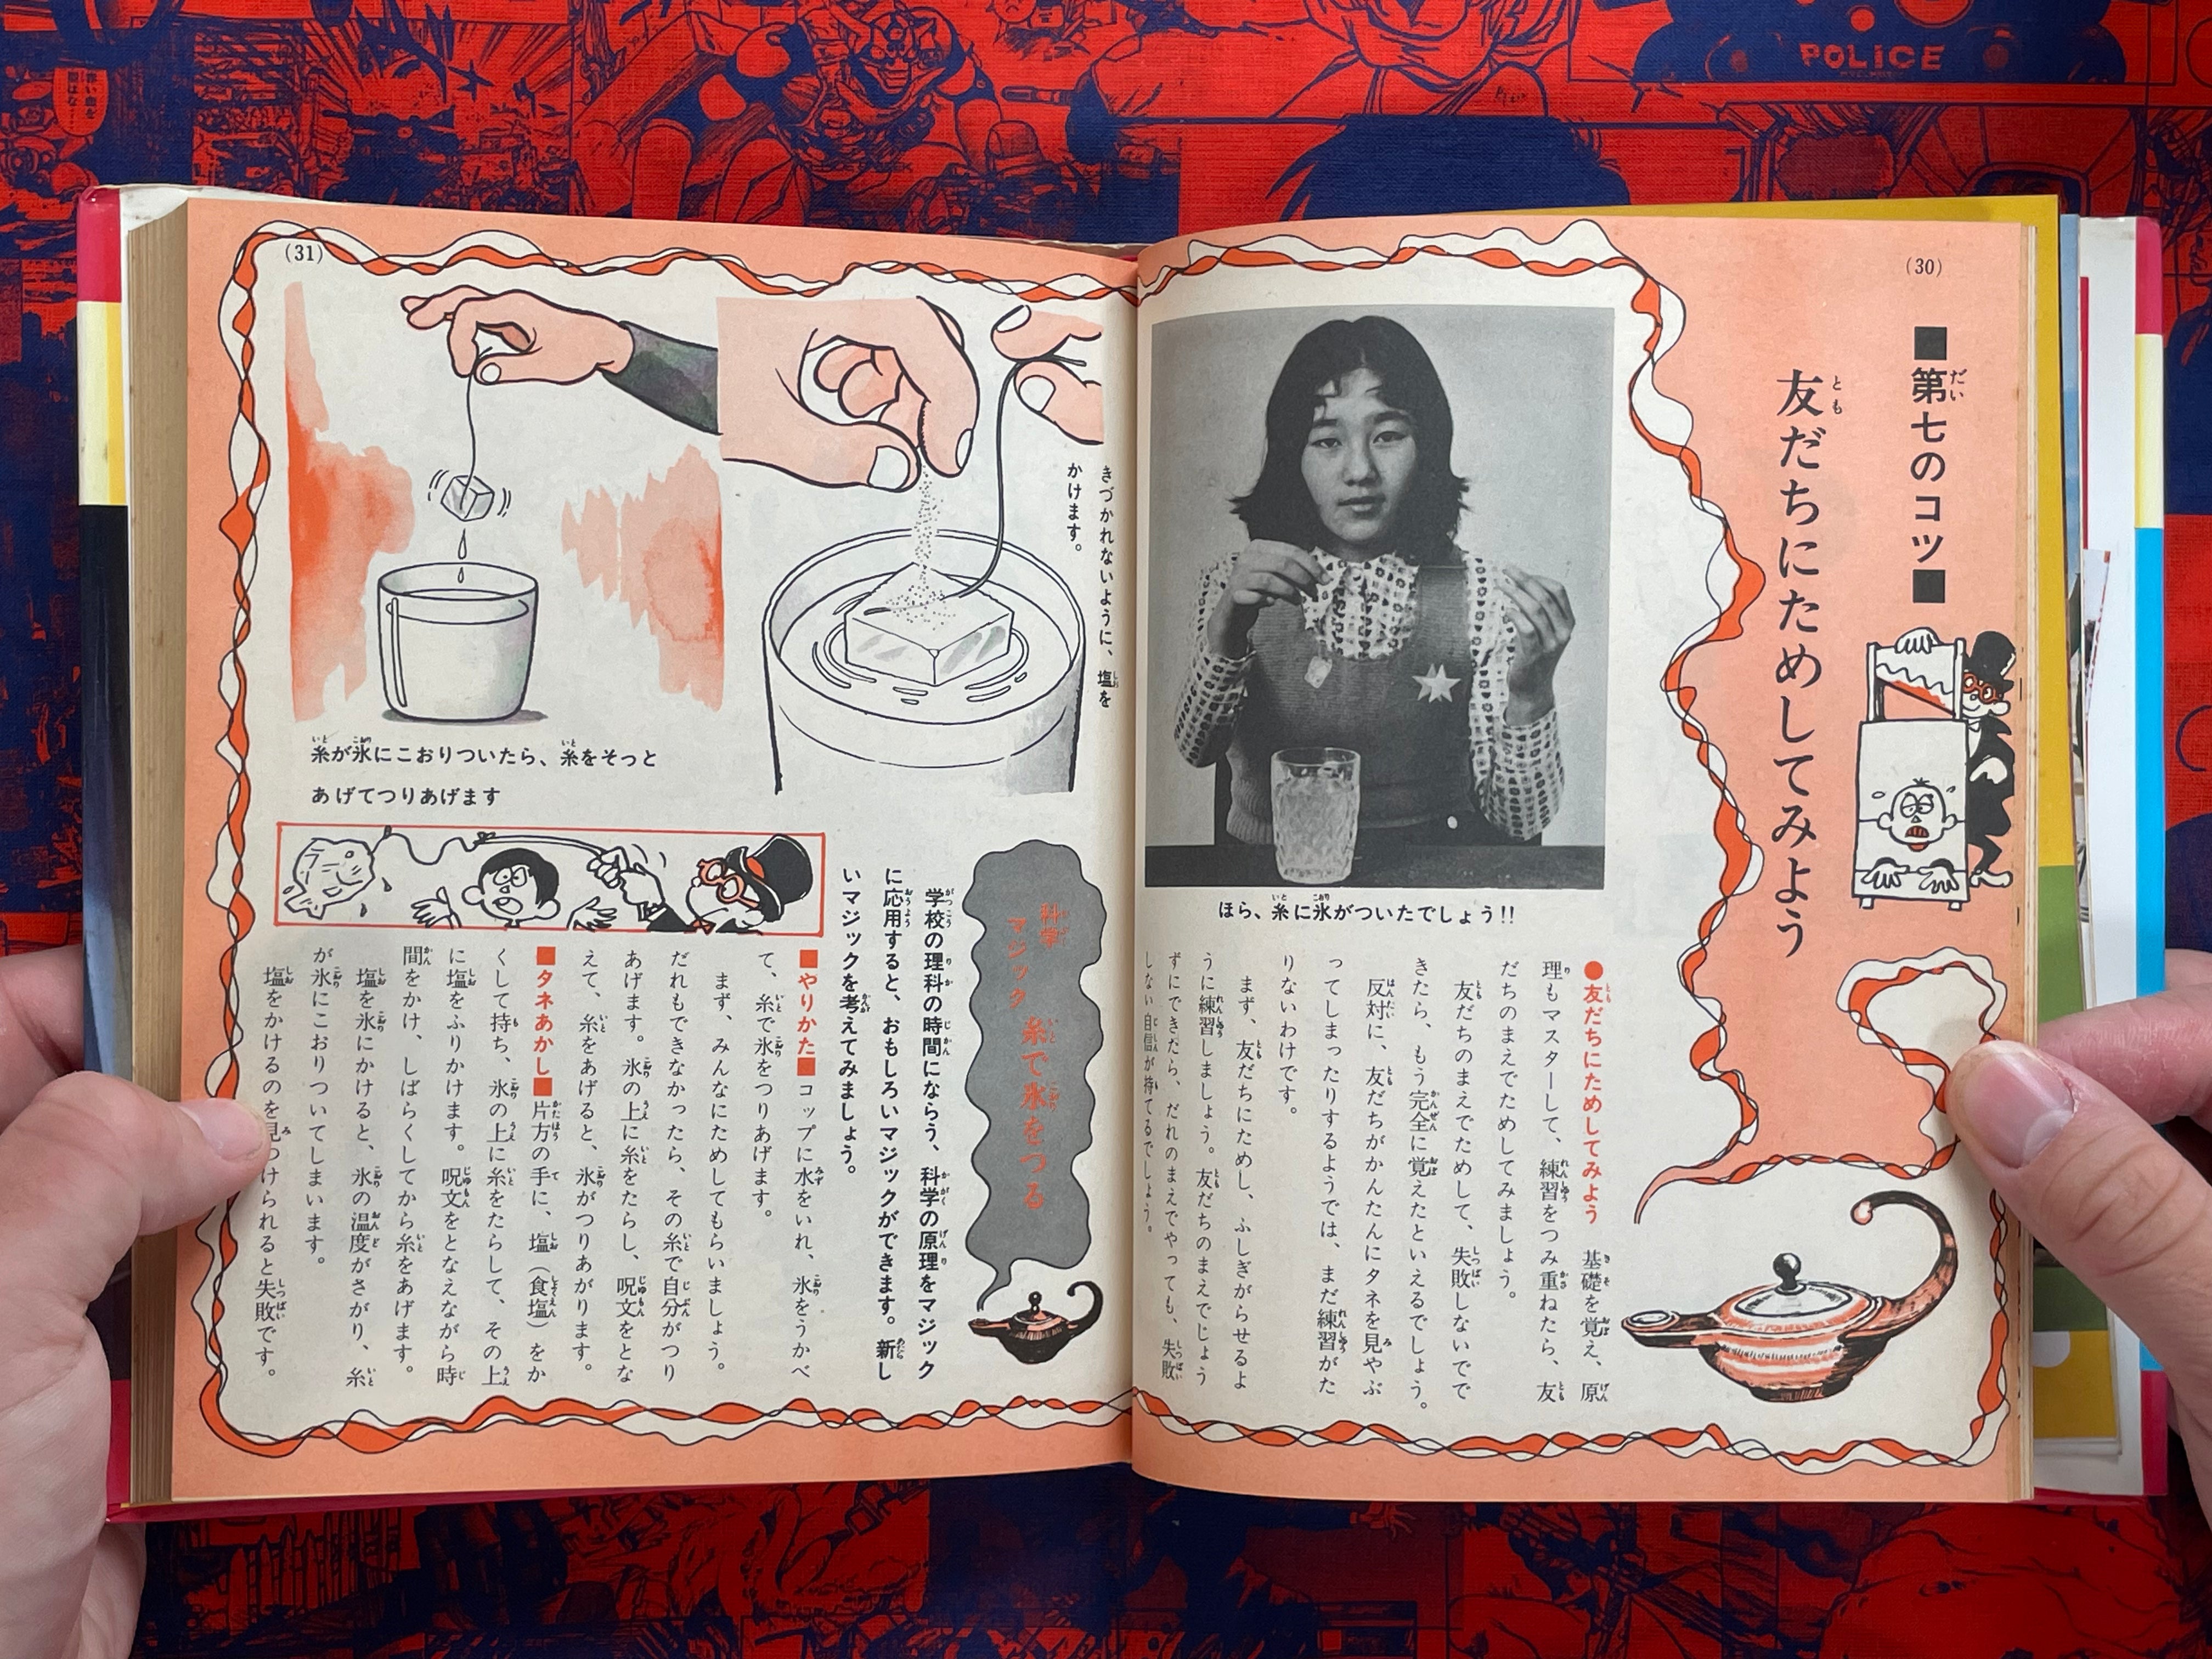 POLICE
(30)
■第七のコツ■
友だちにためしてみよう
ほら、糸に氷がついたでしょう!!
●友だちにためしてみよう　基礎を覚え、原
理もマスターして、練習をつみ重ねたら、友
だちのまえでためしてみましょう。
友だちのまえでためして、失敗しないでで
きたら、もう完全に覚えたといえるでしょう。
反対に、友だちがかんたんにタネを見やぶ
ってしまったりするようでは、まだ練習がた
りないわけです。
まず、友だちにためし、ふしぎがらせるよ
うに練習しましょう。友だちのまえでじょう
ずにできたら、だれのまえでやっても、失敗
しない自信が持てるでしょう。
(31)
きづかれないように、塩を
かけます。
糸が氷にこおりついたら、糸をそっと
あげてつりあげます
科学
マジック
糸で氷をつる
学校の理科の時間にならう、科学の原理をマジック
に応用すると、おもしろいマジックができます。新し
いマジックを考えてみましょう。
■やりかた■　コップに水をいれ、氷をうかべ
て、糸で氷をつりあげます。
まず、みんなにためしてもらいましょう。
だれもできなかったら、その糸で自分がつり
あげます。氷の上に糸をたらし、呪文をとな
えて、糸をあげると、氷がつりあがります。
■タネあかし■　片方の手に、塩(食塩)をか
くして持ち、氷の上に糸をたらして、その上
に塩をふりかけます。呪文をとなえながら時
間をかけ、しばらくしてから糸をあげます。
塩を氷にかけると、氷の温度がさがり、糸
が氷にこおりついてしまいます。
塩をかけるのを見つけられると失敗です。